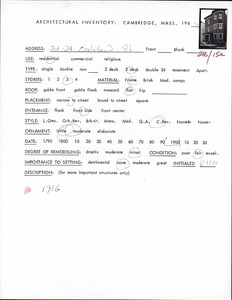 ARCHITECTURAL INVENTORY: CAMBRIDGE, MASS, 196
ADDRESS: St Tract Block
USE: residential commercial religious
TYPE: single double row 2 deck 3 deck double 3d tenement Apart.
STORIES: 1 2 3 4 MATERIAL: Frame Brick Mod. comps
ROOF: gable front gable flank mansard flat hip
PLACEMENT: narrow to street broad to street square
ENTRANCE: flank front side front center
STYLE: L.Geo. Grk.Rev. Brkitt. Mans. Med. Q.A. C.Rev. None
ORNAMENT: little moderate elaborate
DATE: 1790 1800 10 20 30 40 50 60 70 80 90 1900 10 20 30
DEGREE OF REMODELING: drastic moderate minor CONDITION: poor fair excel.
IMPORTANCE TO SETTING: detrimental none moderate great INITIALED
DESCRIPTION: (for more important structures only)
1916